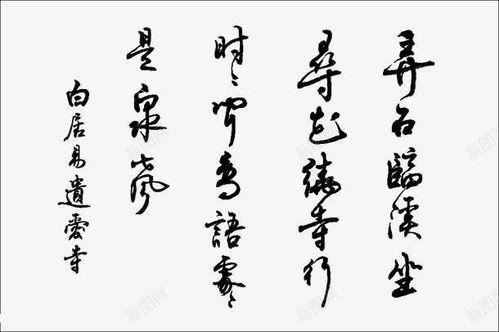 弄石臨溪坐
尋花繞寺行
时〻聞鳥語處〻
是泉聲
白居易遺愛寺
新图网